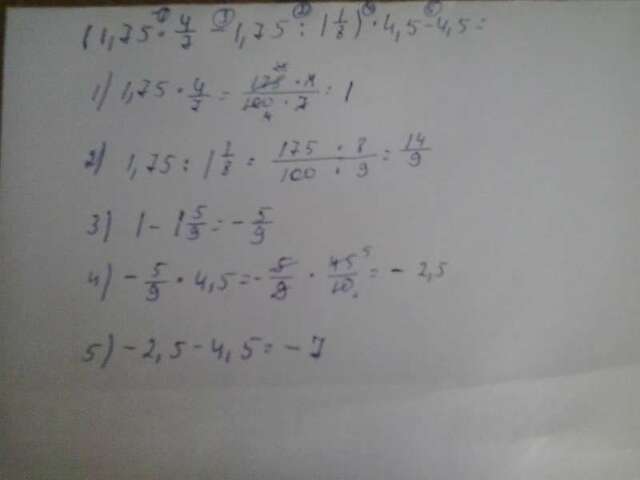 (1,75 · 4/7 − 1,75 : 1 1/8) · 4,5 − 4,5 =
1) 1,75 · 4/7 = 175 · 4 / 100 · 7 = 1
2) 1,75 : 1 1/8 = 175 · 8 / 100 · 9 = 14/9
3) 1 − 1 5/9 = − 5/9
4) − 5/9 · 4,5 = − 5/9 · 45/10 = − 2,5
5) − 2,5 − 4,5 = − 7